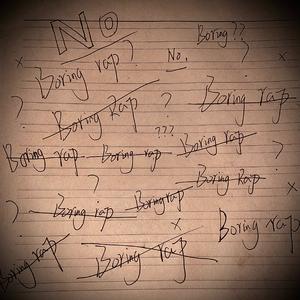 No
Boring??
Boring rap?
No.
?
Boring Rap
?
Boring rap
?
???
Boring rap
Boring rap
Boring rap
?
?
Boring Rap
?
Boring rap
Boring rap
Boring rap
Boring rap
Boring rap